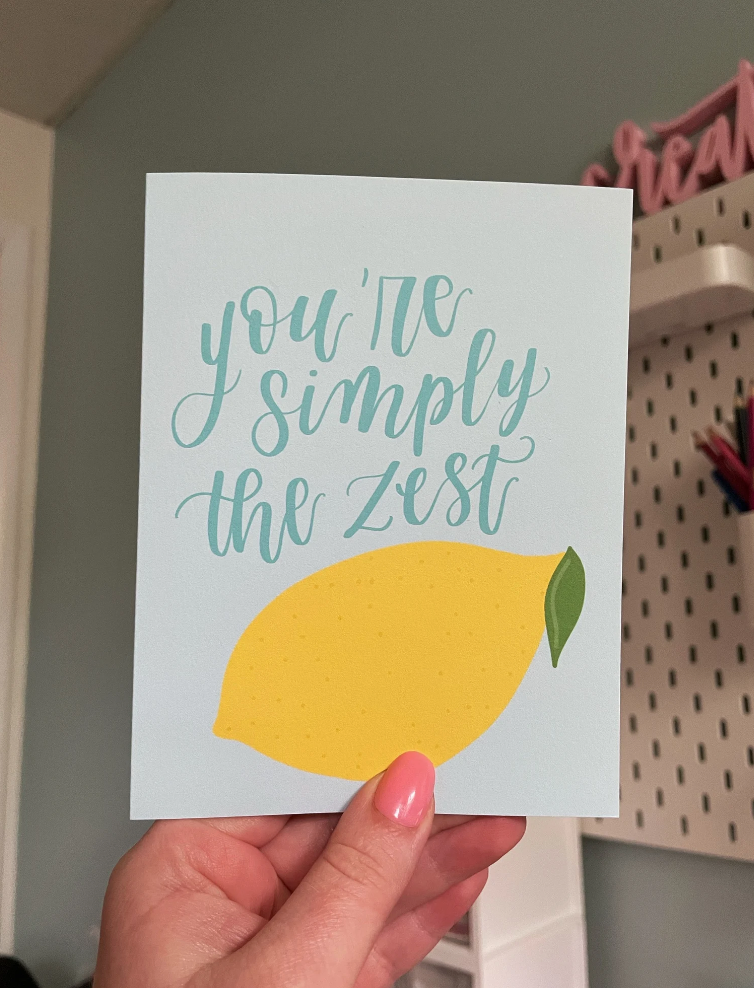 you're
simply
the zest